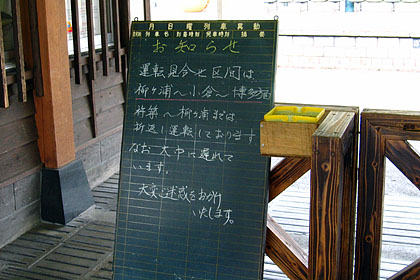 月日曜列車異動
お知らせ
運転見合せ区間は
柳ヶ浦〜小倉〜博多間
杵築〜柳ヶ浦までは
折返し運転しております
なお 大巾に遅れて
います。
大変ご迷惑をおかけ
いたします。